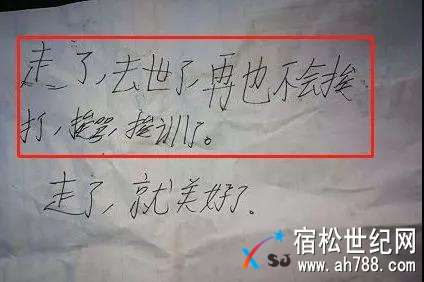 走了,去世了,再也不会挨
打,挨骂,挨训了。
走了,就美好了。
XSJ
宿松世纪网
www.ah788.com